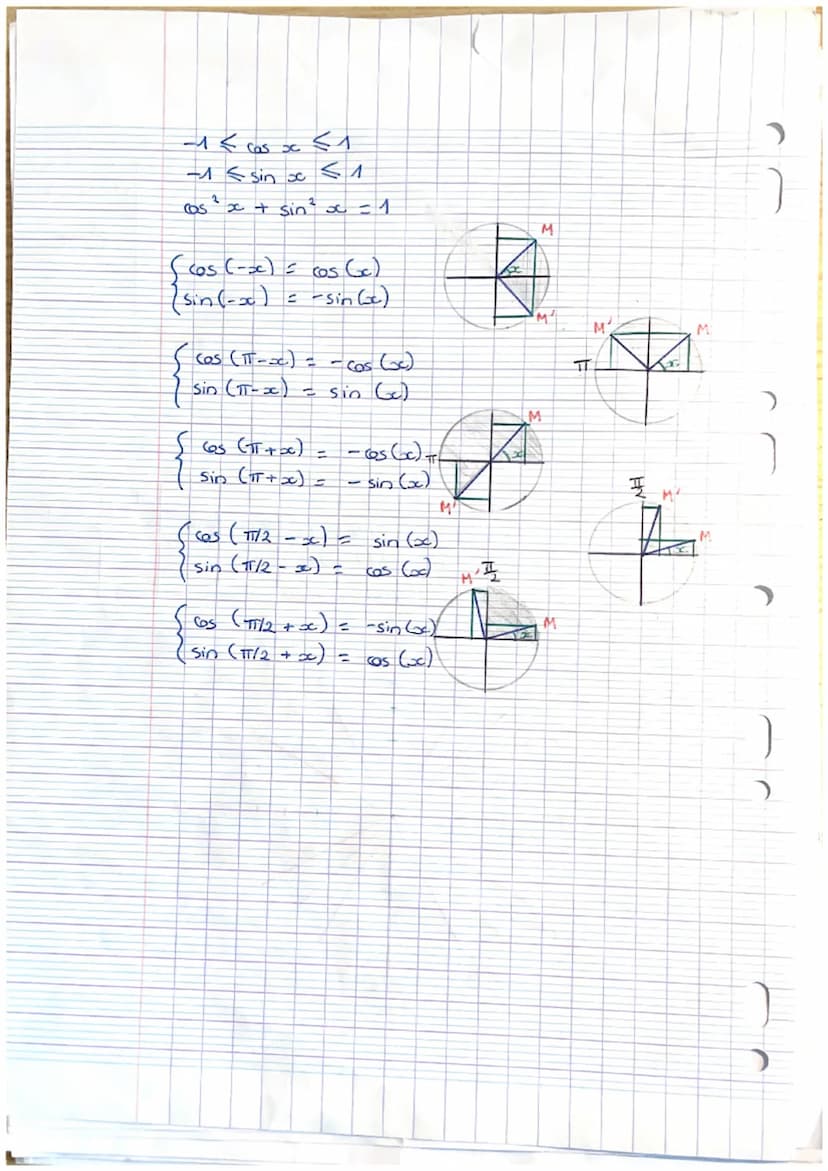 -1 ≤ cos x ≤ 1
-1 ≤ sin x ≤ 1
cos² x + sin² x = 1
cos (-x) = cos (x)
sin (-x) = -sin (x)
M
x
M'
cos (π-x) = -cos (x)
sin (π-x) = sin (x)
M' M
π x
cos (π+x) = -cos (x)
sin (π+x) = - sin (x)
M
π x
M'
cos (π/2 - x) = sin (x)
sin (π/2 - x) = cos (x)
π/2 M'
M
x
cos (π/2 + x) = -sin (x)
sin (π/2 + x) = cos (x)
M' π/2
M
x